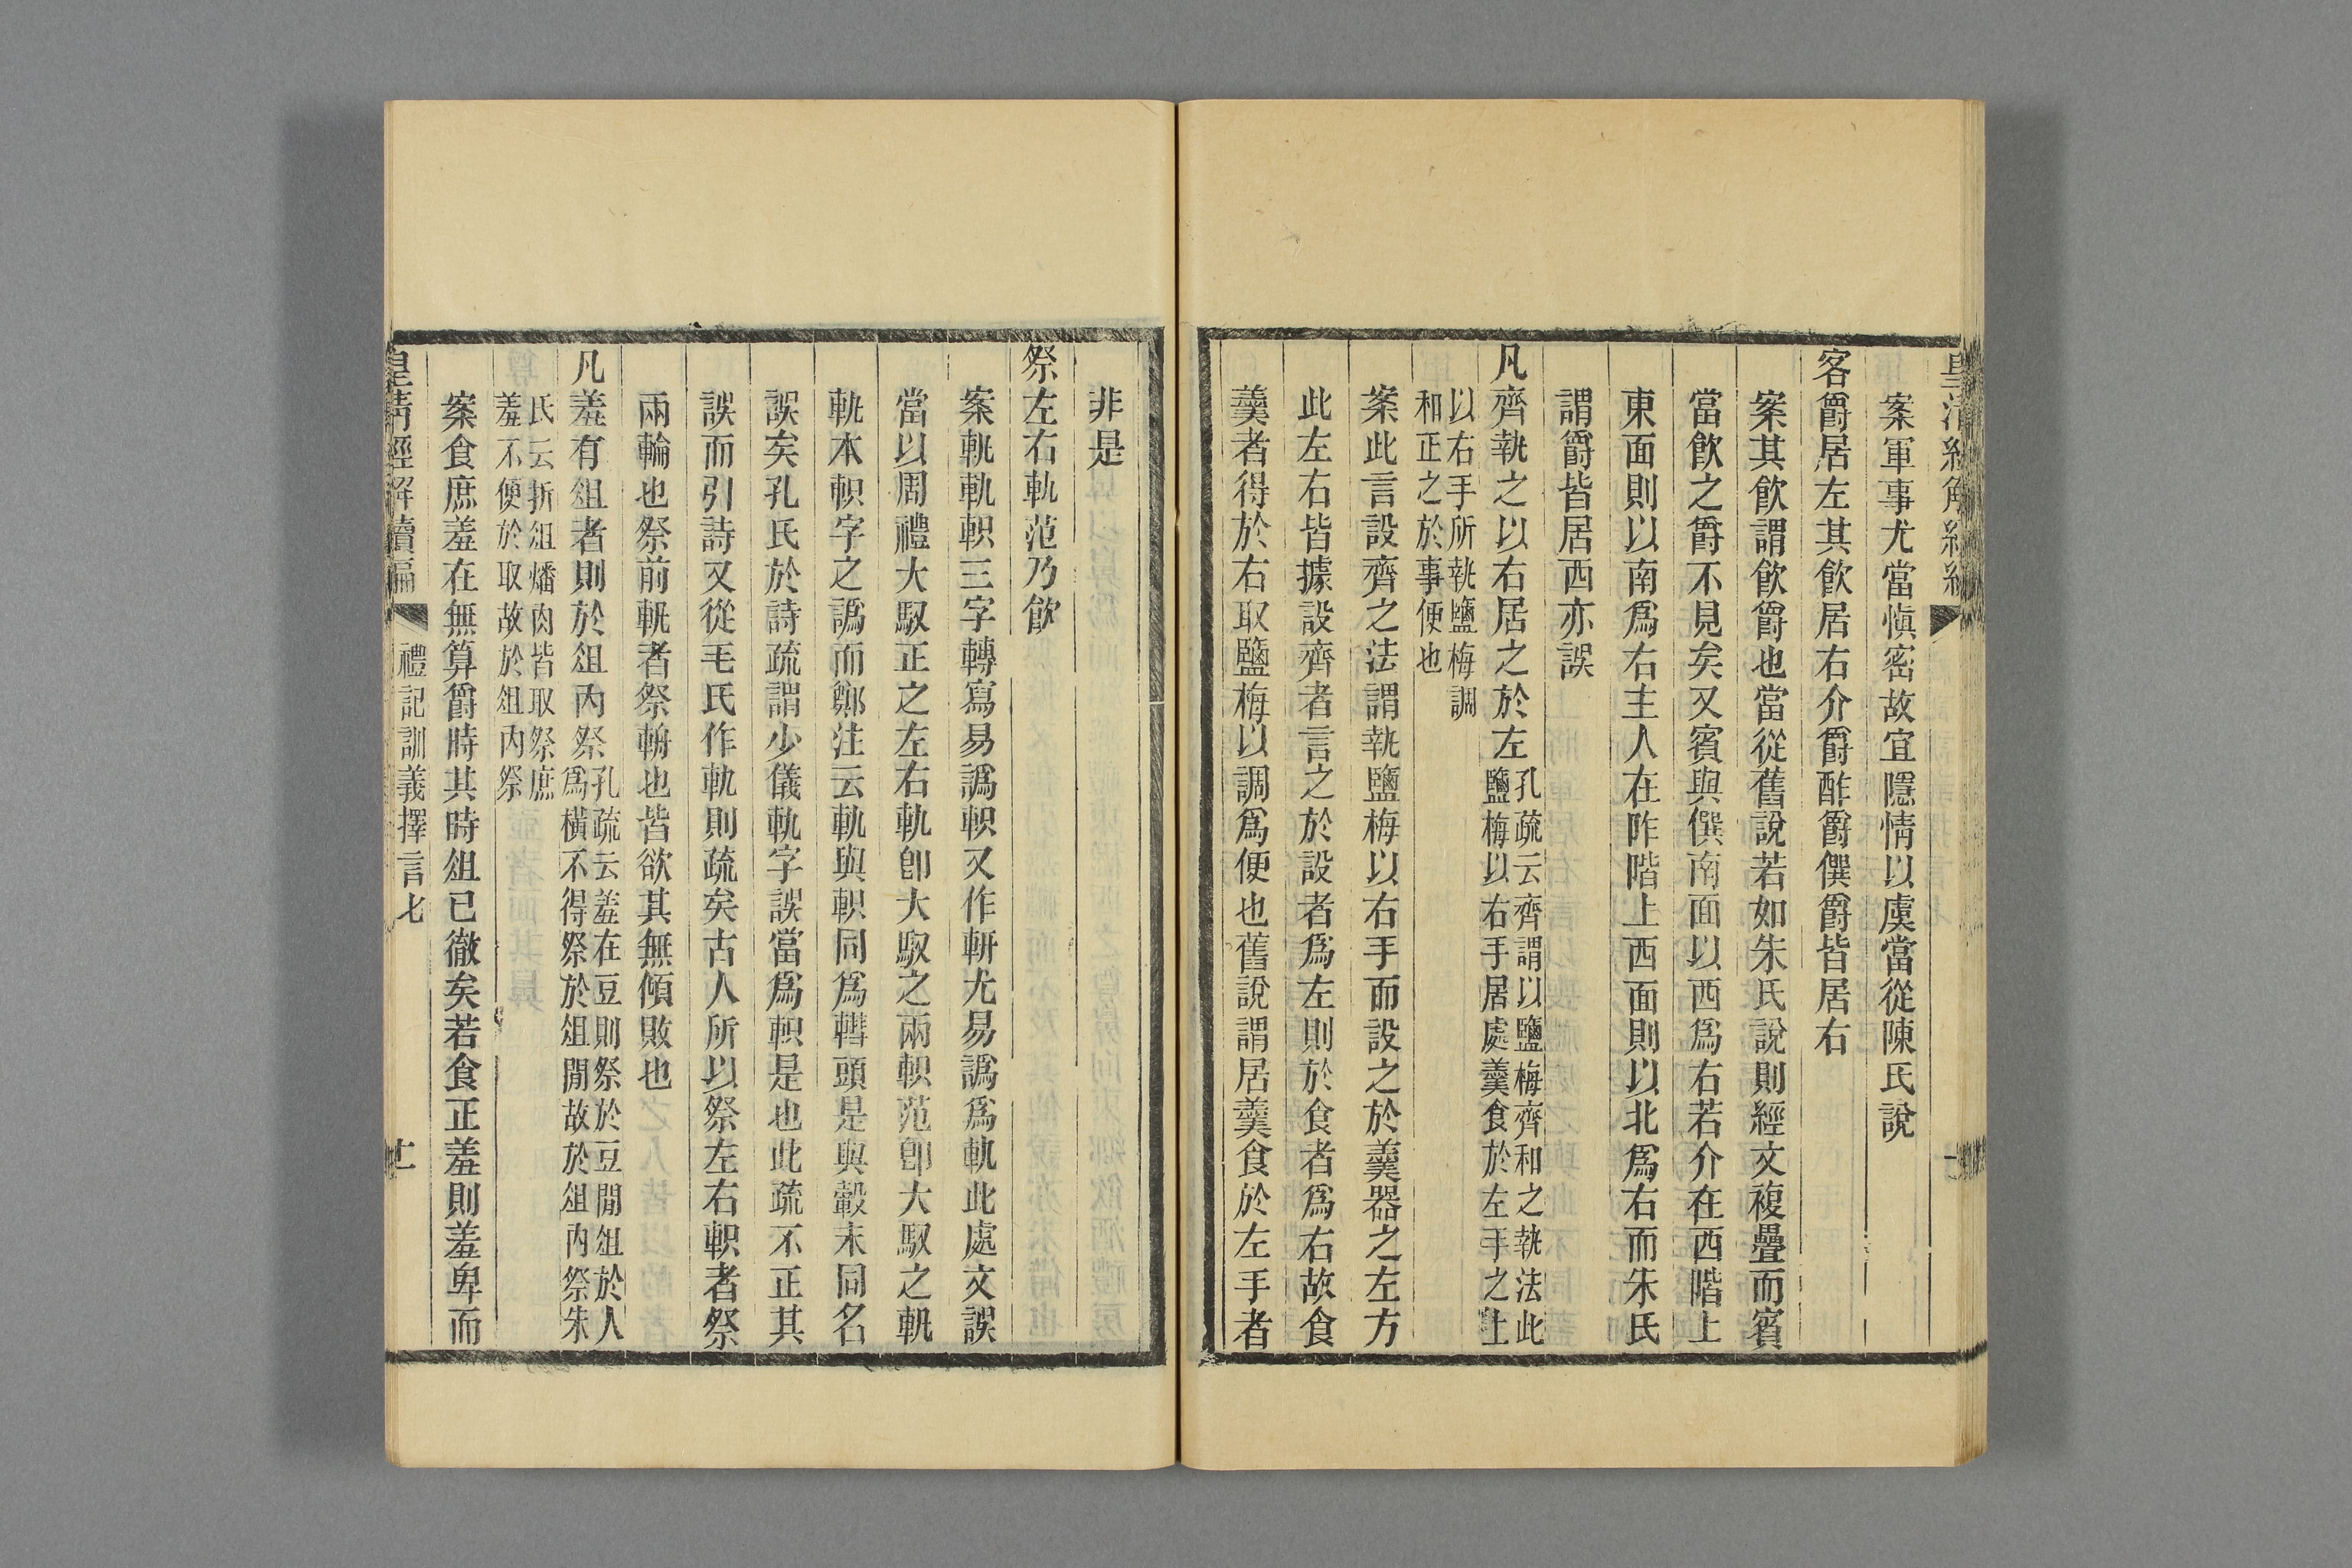 案軍事尤當愼密故宜隱情以虞當從陳氏說
客爵居左其飮居右介爵酢爵僎爵皆居右
案其飮謂飮爵也當從舊說若如朱氏說則經文複疊而賓
當飮之爵不見矣又賓與僎南面以西爲右若介在西階上
東面則以南爲右主人在阼階上西面則以北爲右而朱氏
謂爵皆居西亦誤
凡齊執之以右居之於左孔疏云齊謂以鹽梅齊和之執法此
鹽梅以右手居處羹食於左手之上
以右手所執鹽梅調
和正之於事便也
案此言設齊之法謂執鹽梅以右手而設之於羹器之左方
此左右皆據設齊者言之於設者爲左則於食者爲右故食
羹者得於右取鹽梅以調爲便也舊說謂居羹食於左手者
非是
祭左右軌范乃飮
案軓軌軹三字轉寫易譌軹又作軿尤易譌爲軌此處文誤
當以周禮大馭正之左右軌卽大馭之兩軹范卽大馭之軓
軌本軹字之譌而鄭注云軌與軹同爲轊頭是與轂末同名
誤矣孔氏於詩疏謂少儀軌字誤當爲軹是也此疏不正其
誤而引詩又從毛氏作軌則疏矣古人所以祭左右軹者祭
兩輪也祭前軓者祭輈也皆欲其無傾敗也
凡羞有俎者則於俎內祭孔疏云羞在豆則祭於豆閒俎於人
爲橫不得祭於俎閒故於俎內祭朱
氏云折俎燔肉皆取祭庶
羞不便於取故於俎內祭
案食庶羞在無算爵時其時俎已徹矣若食正羞則羞卑而
皇清經解續編 禮記訓義擇言七